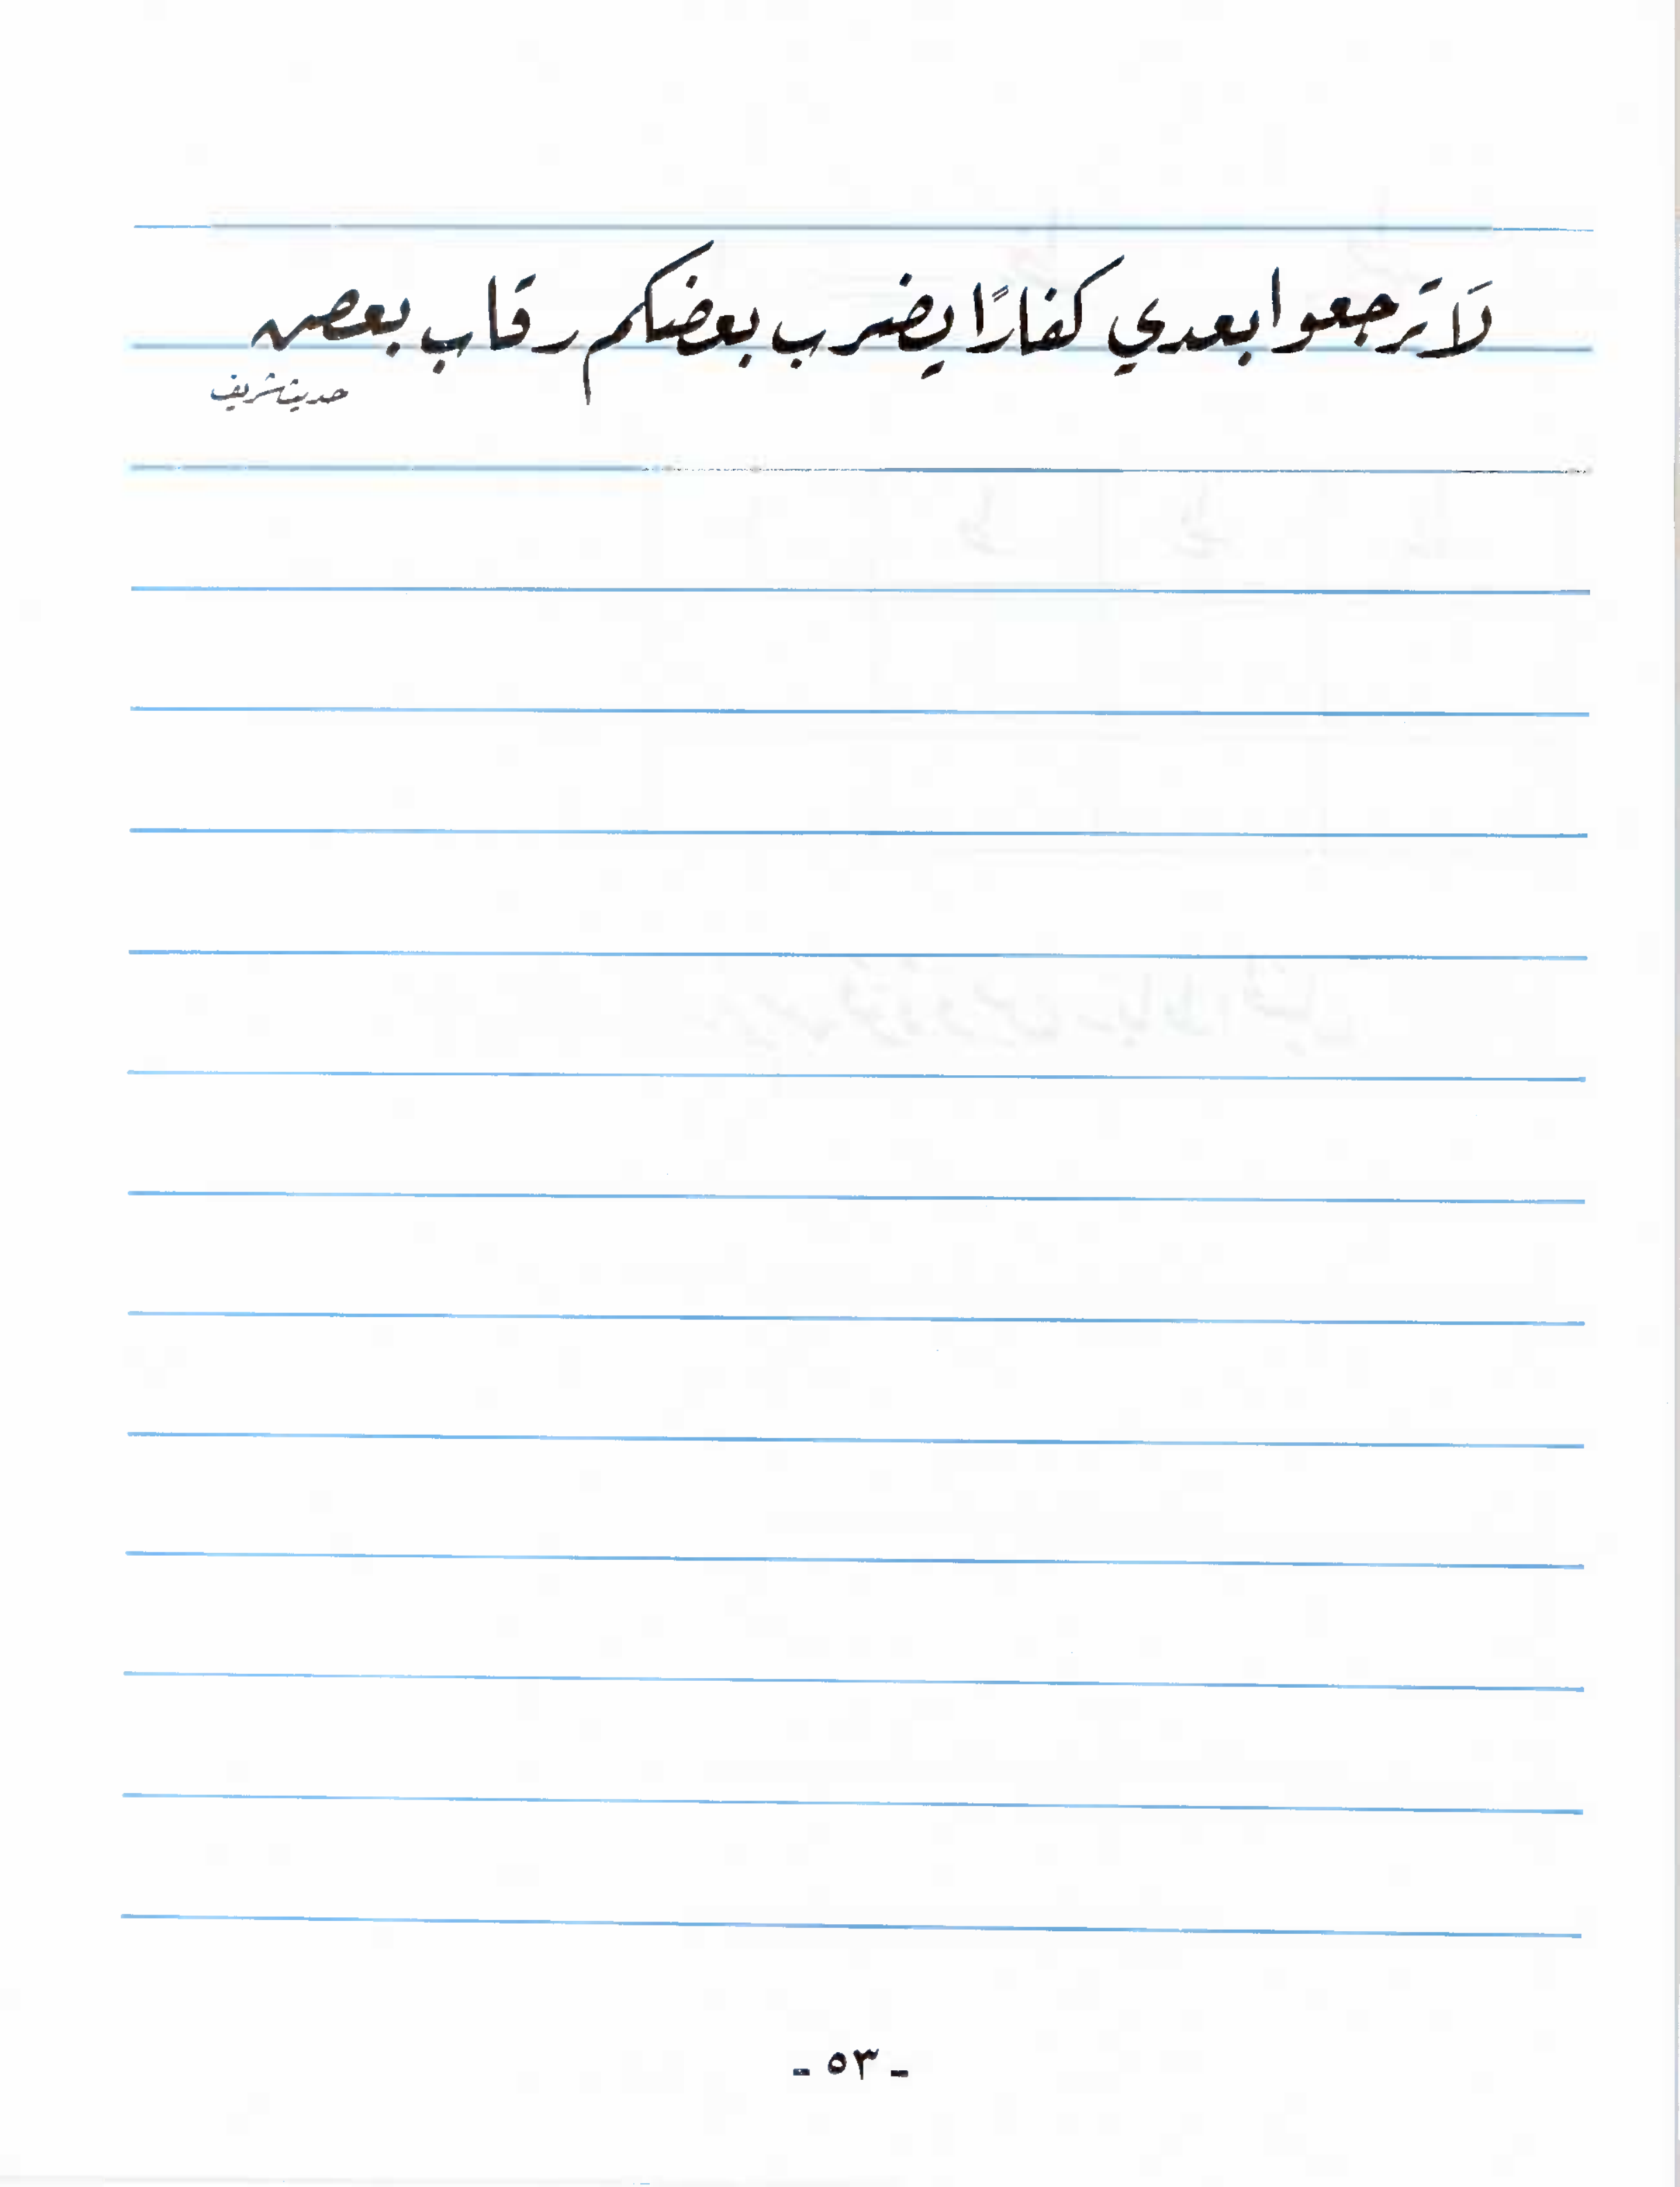 لَا ترجعوا بعدي كفارًا يضرب بعضكم رقاب بعض
حديث شريف
- ٥٣ -